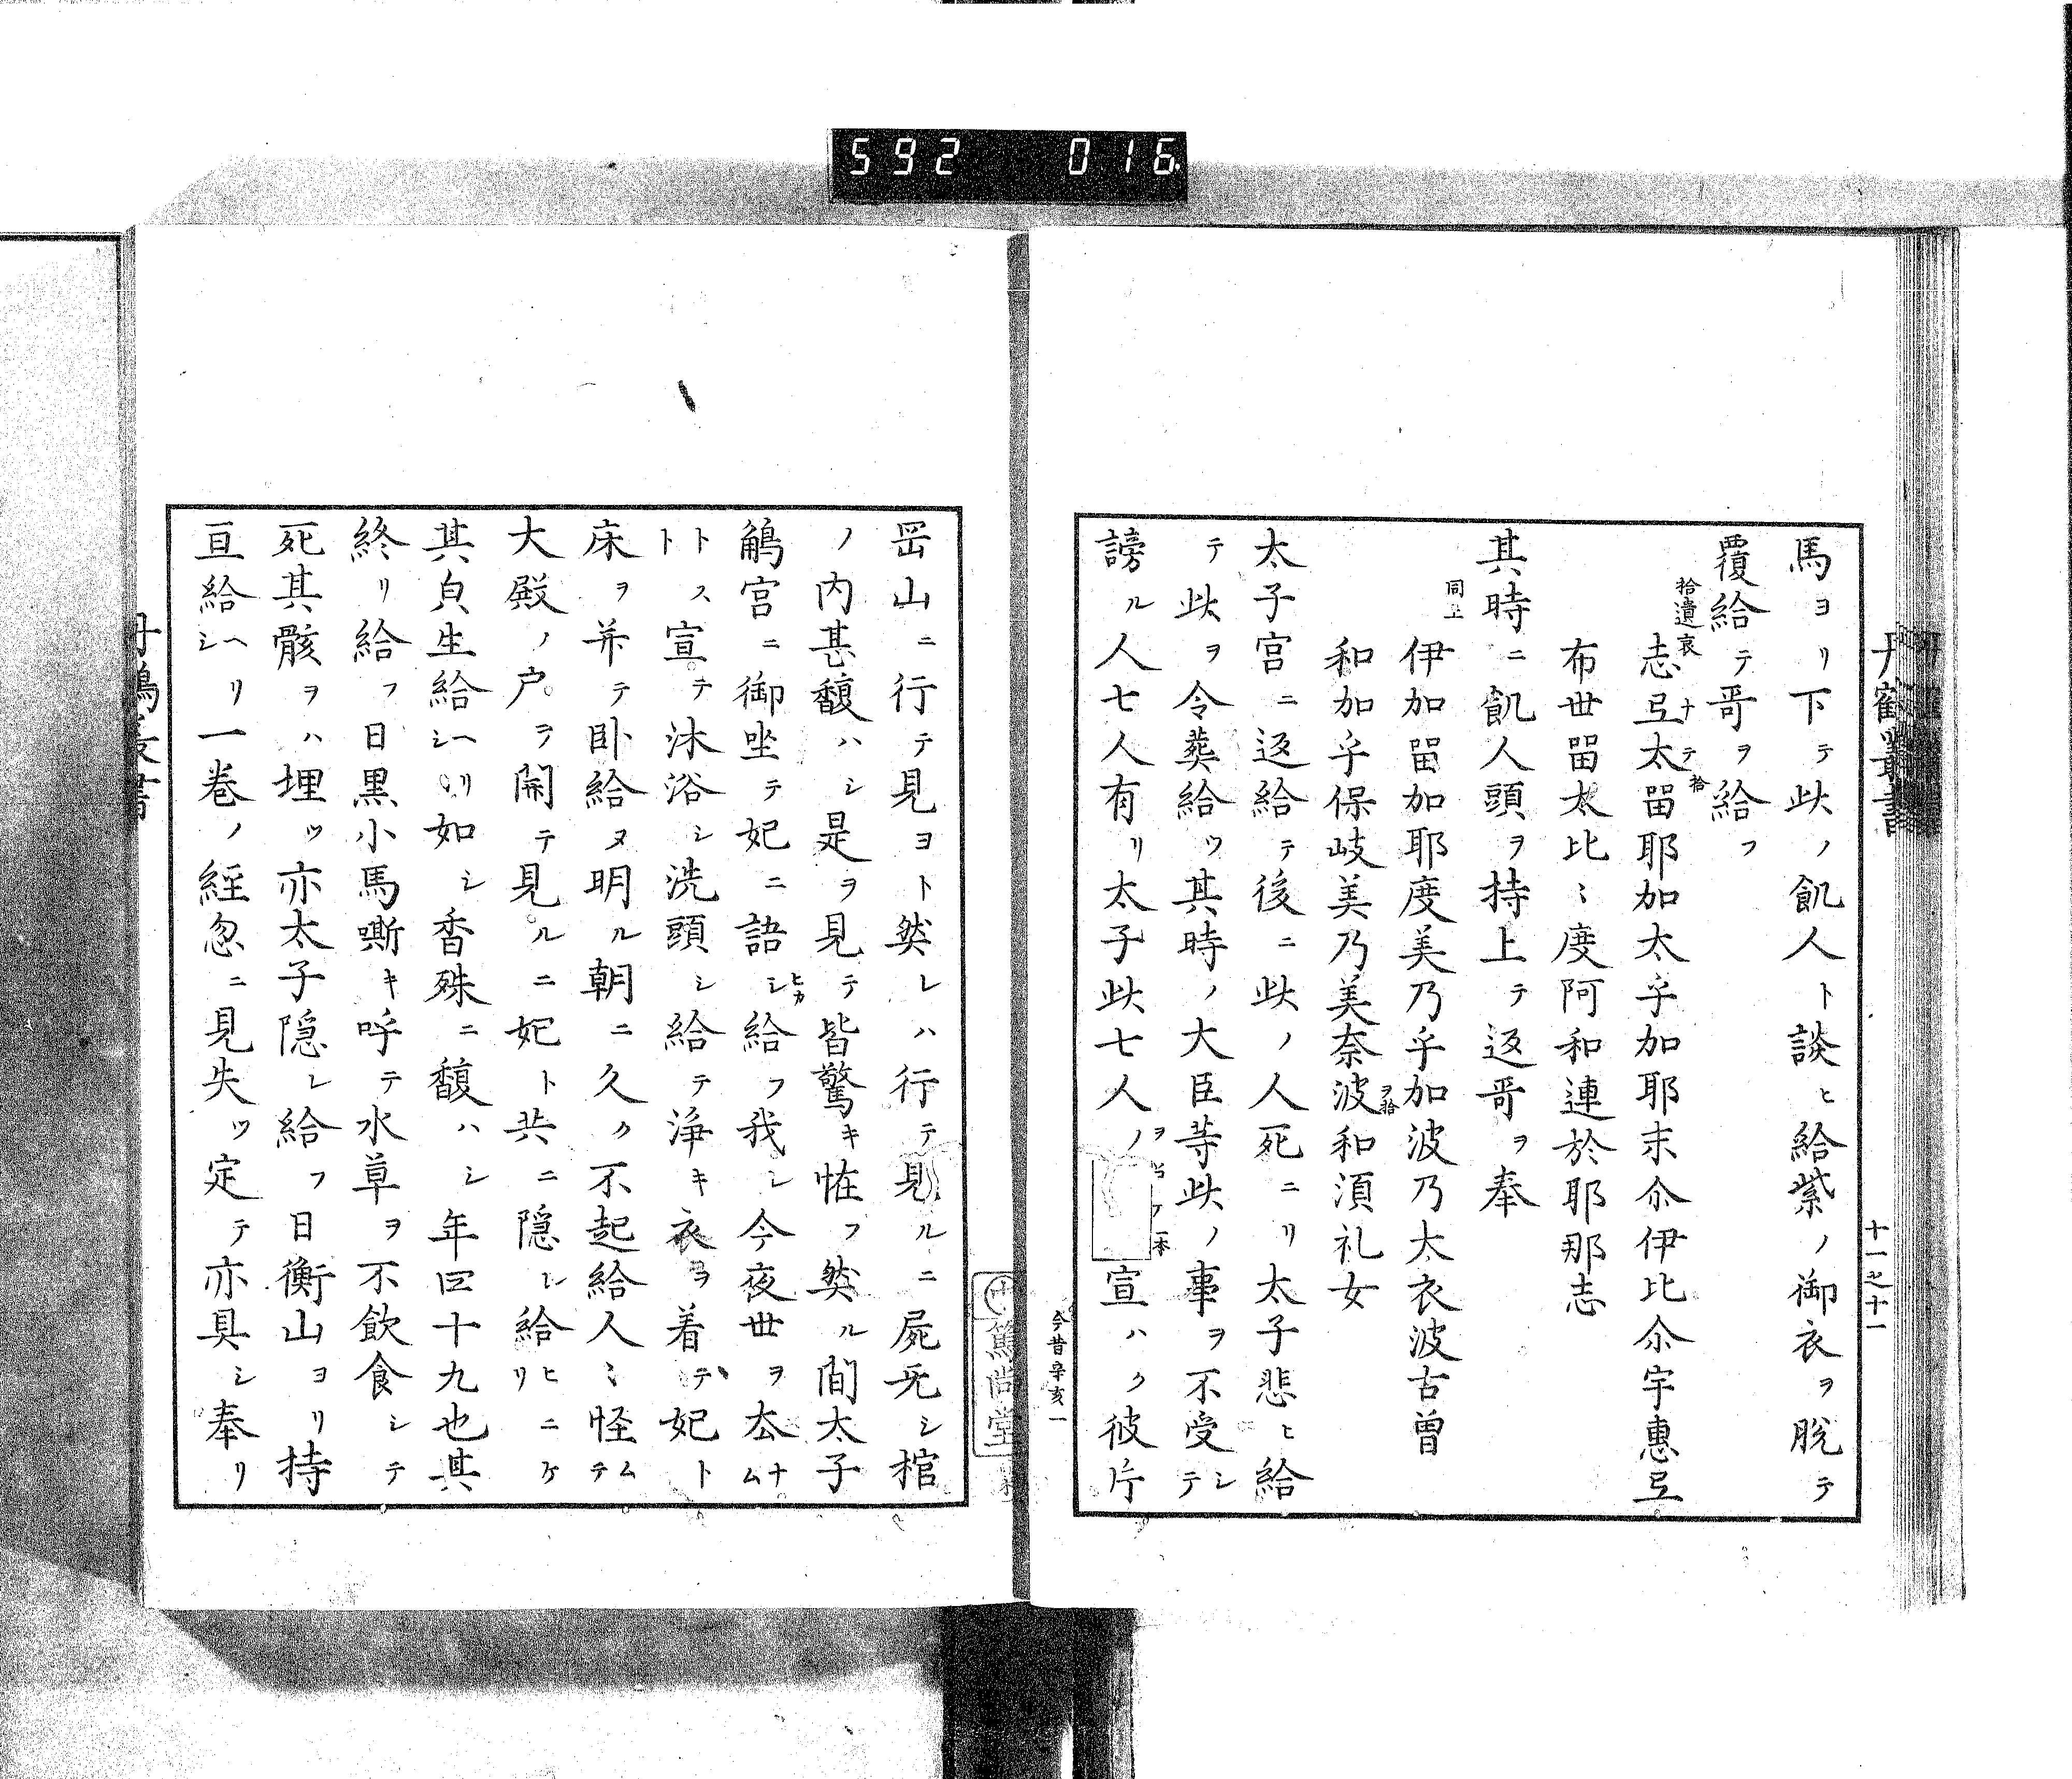 592 016
丹鶴叢書
十一之十一
馬ヨリ下テ此ノ飢人ト談ヒ給紫ノ御衣ヲ脱テ
覆給テ哥ヲ給フ
拾遺哀
志弖太留耶加太乎加耶末尒伊比尒宇恵弖
ナテ拾
布世留太比〻度阿和連於耶那志
其時ニ飢人頭ヲ持上テ返哥ヲ奉
同上
伊加留加耶度美乃乎加波乃太衣波古曽
和加乎保岐美乃美奈波和湏礼女
ヲ拾
太子宮ニ返給テ後ニ此ノ人死ニリ太子悲ヒ給
テ此ヲ令葬給ツ其時ノ大臣等此ノ事ヲ不受シテ
謗ル人七人有リ太子此七人ノ 宣ハク彼片
ヲ
一本
今昔辛亥一
篤尚堂
岡山ニ行テ見ヨト然レハ行テ見ルニ屍无シ棺
ノ内甚馥ハシ是ヲ見テ皆驚キ恠フ然ル間太子
鵤宮ニ御坐テ妃ニ語シ給フ我レ今夜世ヲ厺ナム
ヒカ
トストト宣テ沐浴シ洗頭シ給テ浄キ衣ヲ着テ妃ト
床ヲ并テ卧給ヌ明ル朝ニ久ク不起給人〻怪ムテ
大殿ノ户ヲ開テ見ルニ妃ト共ニ隠レ給ヒニケリ
其皃生給ヘリシ如シ香殊ニ馥ハシ年四十九也其
終リ給フ日黒小馬嘶キ呼テ水草ヲ不飲食シテ
死其骸ヲハ埋ツ亦太子隠レ給フ日衡山ヨリ持
亘給ヘリシ一巻ノ経忽ニ見失ツ定テ亦具シ奉リ
丹鶴叢書